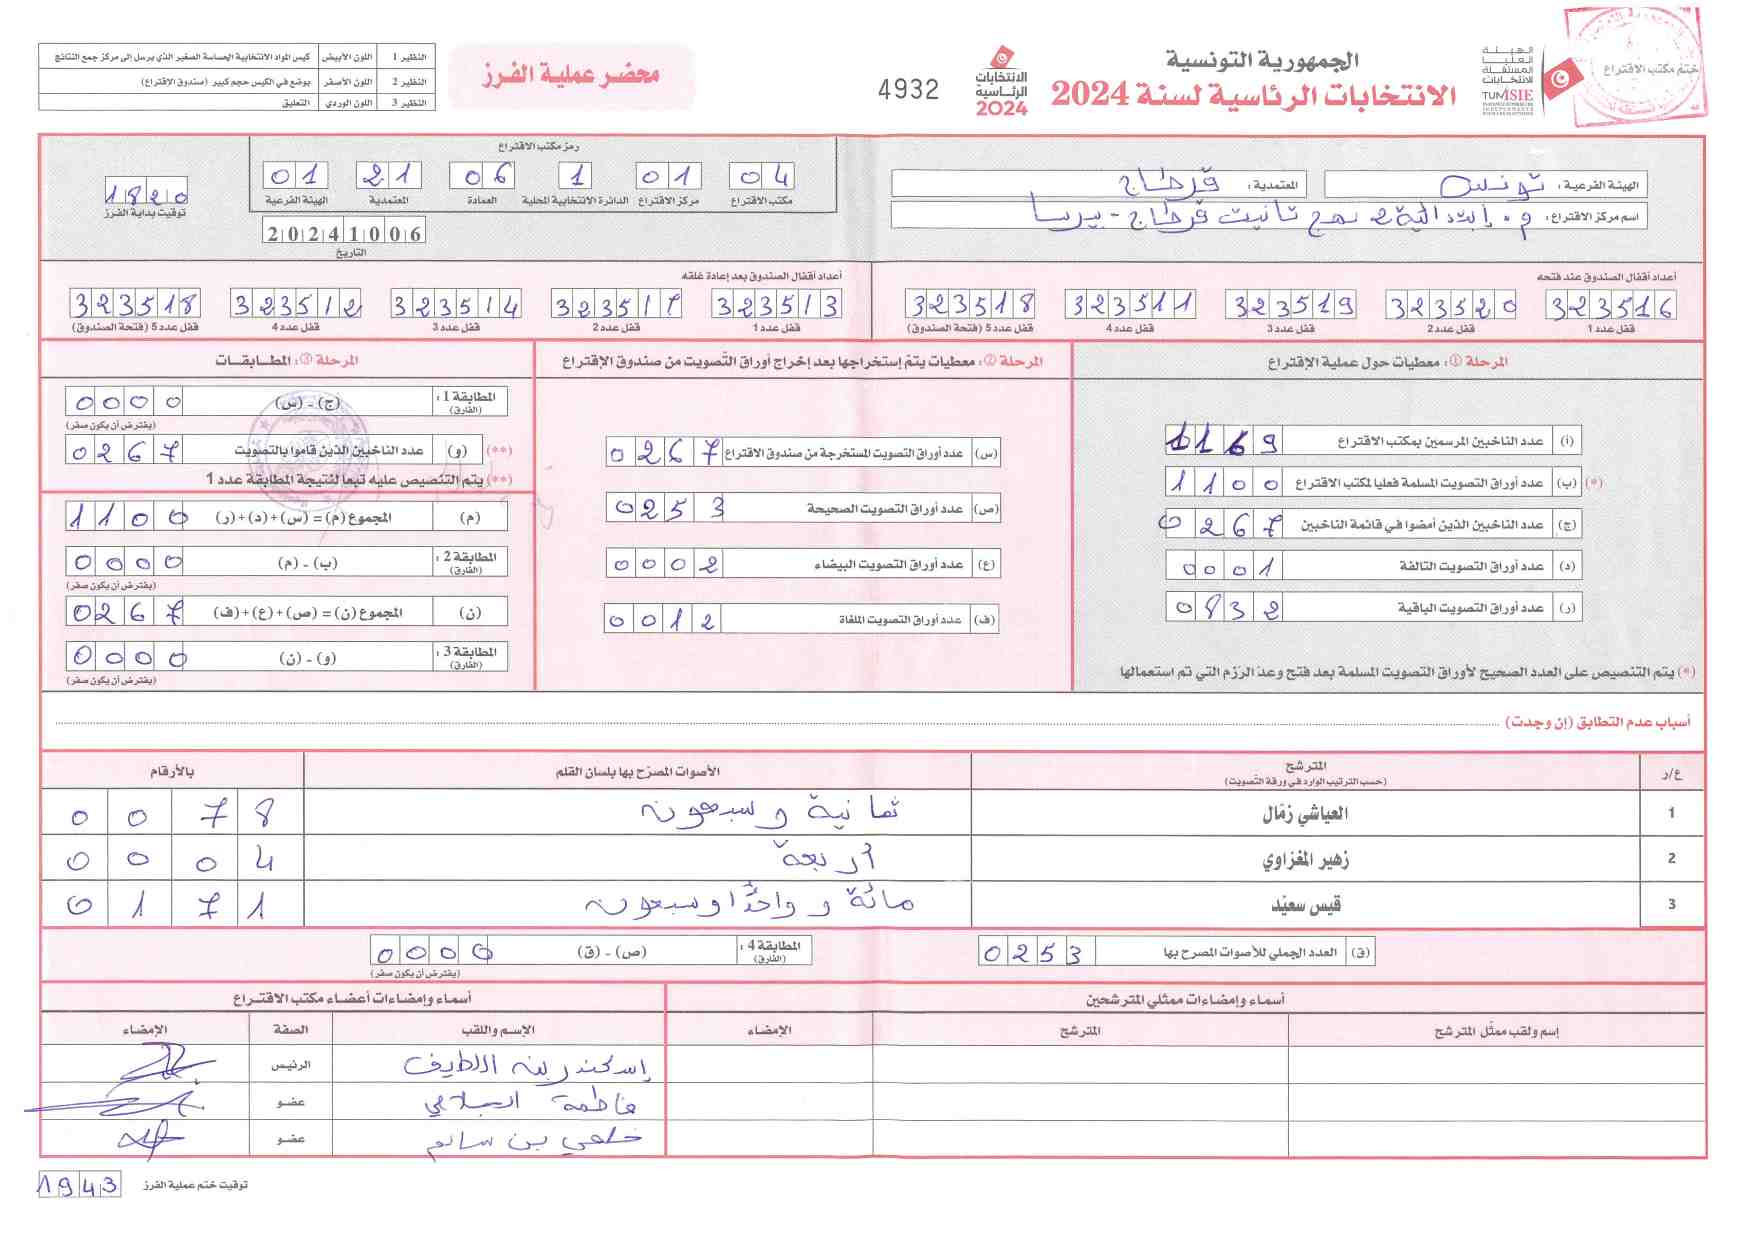 ختم مكتب الاقتراع
الهيئة
العليا
المستقلة
للانتخابات
TUNISIE
الجمهورية التونسية
الانتخابات الرئاسية لسنة 2024
الانتخابات
الرئاسية
2024
4932
محضر عملية الفرز
النظير 1 اللون الأبيض كيس المواد الانتخابية الحساسة الصغير الذي يرسل إلى مركز جمع النتائج
النظير 2 اللون الأصفر يوضع في الكيس حجم كبير (صندوق الاقتراع)
النظير 3 اللون الوردي التعليق
الهيئة الفرعية: تونس المعتمدية: قرطاج
اسم مركز الاقتراع: م. إبتدائية 2 نهج تانيت قرطاج - بيرسا
رمز مكتب الاقتراع
04 01 1 06 21 01
مكتب الاقتراع مركز الاقتراع الدائرة الانتخابية المحلية العمادة المعتمدية الهيئة الفرعية
20241006
التاريخ
1820
توقيت بداية الفرز
أعداد أقفال الصندوق عند فتحه
323516 323520 323519 323511 323518
قفل عدد 1 قفل عدد 2 قفل عدد 3 قفل عدد 4 قفل عدد 5 (فتحة الصندوق)
أعداد أقفال الصندوق بعد إعادة غلقه
323513 323517 323514 323512 323518
قفل عدد 1 قفل عدد 2 قفل عدد 3 قفل عدد 4 قفل عدد 5 (فتحة الصندوق)
المرحلة ①: معطيات حول عملية الإقتراع
(أ) عدد الناخبين المرسمين بمكتب الاقتراع 1169
(*) (ب) عدد أوراق التصويت المسلمة فعليا لمكتب الاقتراع 1100
(ج) عدد الناخبين الذين أمضوا في قائمة الناخبين 0267
(د) عدد أوراق التصويت التالفة 0001
(ر) عدد أوراق التصويت الباقية 0832
(*) يتم التنصيص على العدد الصحيح لأوراق التصويت المسلمة بعد فتح وعدّ الرّزم التي تم استعمالها
المرحلة ②: معطيات يتمّ إستخراجها بعد إخراج أوراق التّصويت من صندوق الإقتراع
(س) عدد أوراق التصويت المستخرجة من صندوق الاقتراع 0267
(ص) عدد أوراق التصويت الصحيحة 0253
(ع) عدد أوراق التصويت البيضاء 0002
(ف) عدد أوراق التصويت الملغاة 0012
المرحلة ③: المطابقات
المطابقة 1: (الفارق) (ج) - (س) 0000
(يفترض أن يكون صفر)
(**) (و) عدد الناخبين الذين قاموا بالتصويت 0267
(**) يتم التنصيص عليه تبعا لنتيجة المطابقة عدد 1
(م) المجموع (م) = (س)+(د)+(ر) 1100
المطابقة 2: (الفارق) (ب) - (م) 0000
(يفترض أن يكون صفر)
(ن) المجموع (ن) = (ص)+(ع)+(ف) 0267
المطابقة 3: (الفارق) (و) - (ن) 0000
(يفترض أن يكون صفر)
أسباب عدم التطابق (إن وجدت)
ع/ر المترشح الأصوات المصرّح بها بلسان القلم بالأرقام
(حسب الترتيب الوارد في ورقة التّصويت)
1 العياشي زمّال ثمانية وسبعون 0078
2 زهير المغزاوي أربعة 0004
3 قيس سعيّد مائة و واحدًا وسبعون 0171
(ق) العدد الجملي للأصوات المصرح بها 0253
المطابقة 4: (الفارق) (ص) - (ق) 0000
(يفترض أن يكون صفر)
أسماء وإمضاءات ممثلي المترشحين
إسم ولقب ممثّل المترشح المترشح الإمضاء
أسماء وإمضاءات أعضاء مكتب الاقتراع
الإسم واللقب الصفة الإمضاء
إسكندر بن اللطيف الرئيس
فاطمة عضو
بن سالم عضو
توقيت ختم عملية الفرز 1943